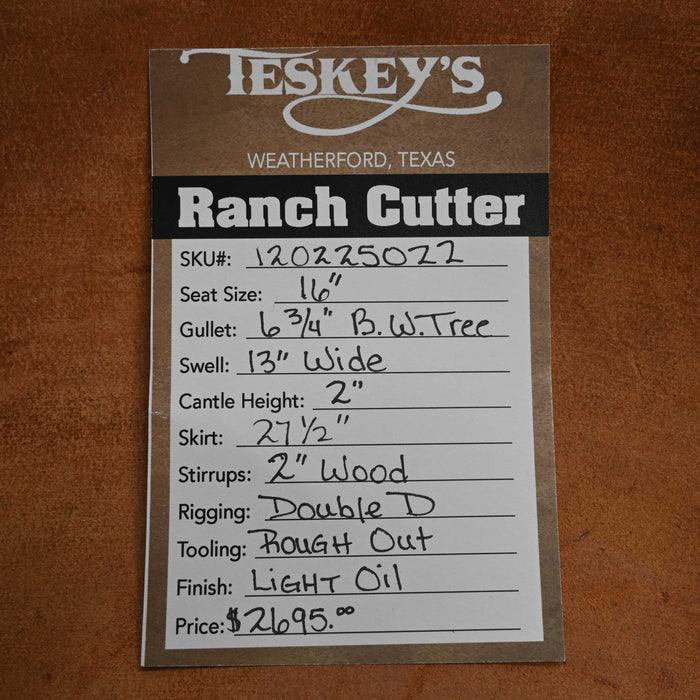 TESKEY'S
WEATHERFORD, TEXAS
Ranch Cutter
SKU#: 120225022
Seat Size: 16"
Gullet: 6 3/4" B.W. Tree
Swell: 13" Wide
Cantle Height: 2"
Skirt: 27 1/2"
Stirrups: 2" Wood
Rigging: Double D
Tooling: ROUGH Out
Finish: LIGHT Oil
Price: $2695.00